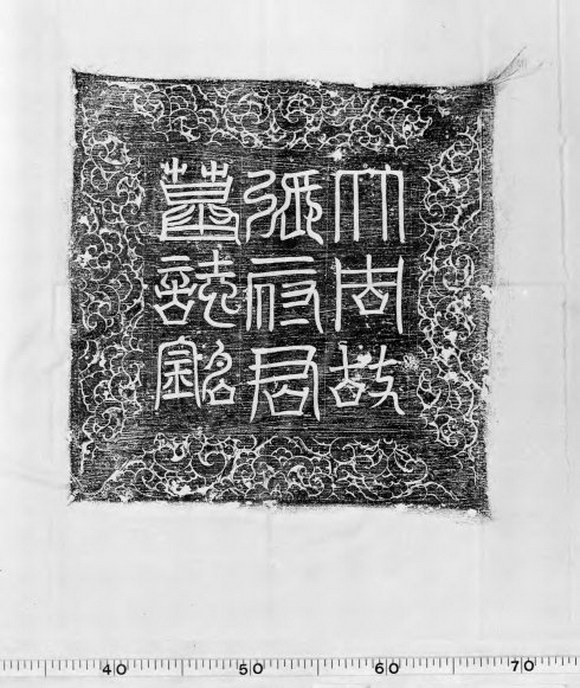 大周故
張府君
墓誌銘
40 50 60 70